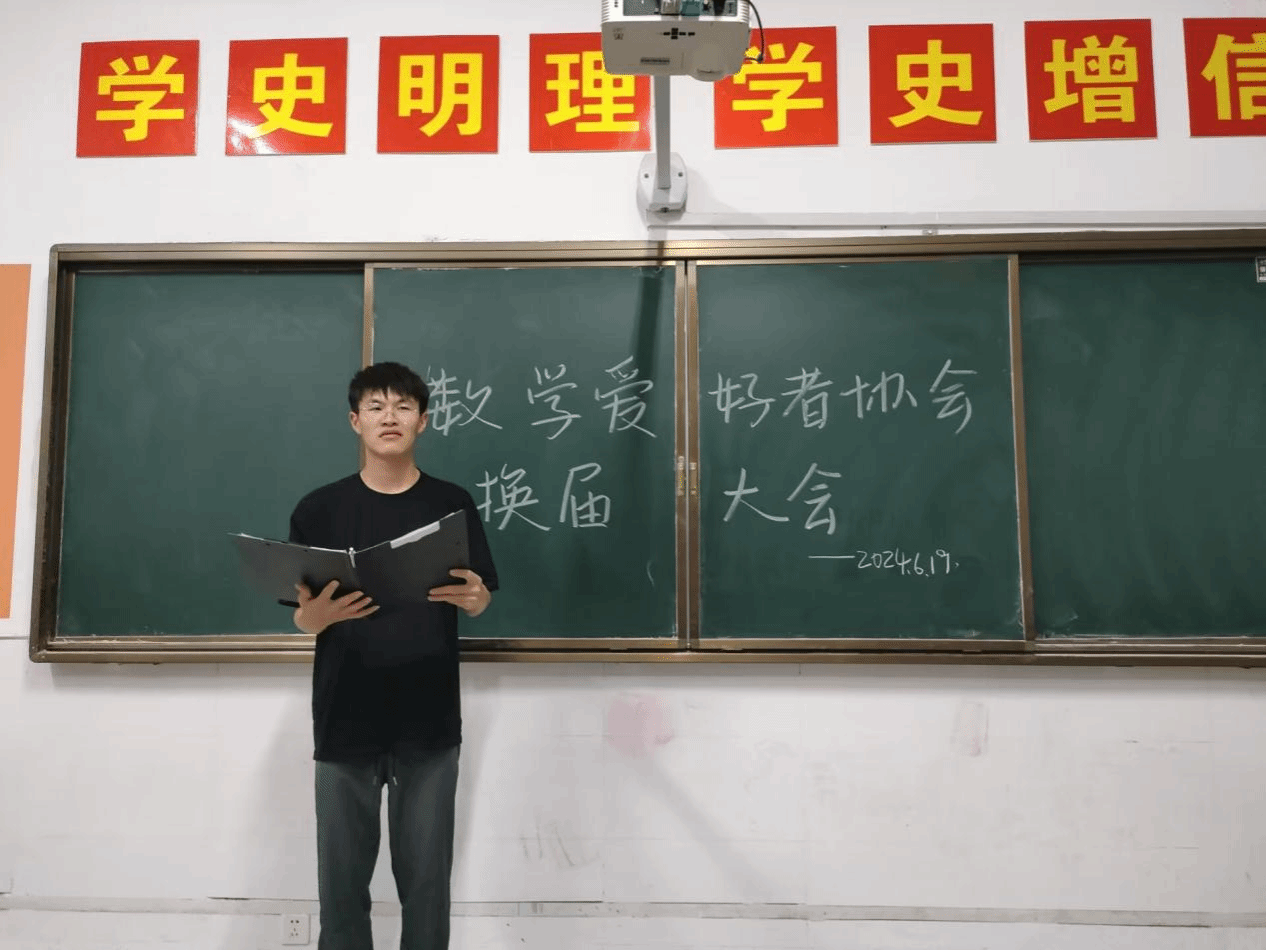 学史明理学史增信
数学爱好者协会
换届大会
——2024.6.19.